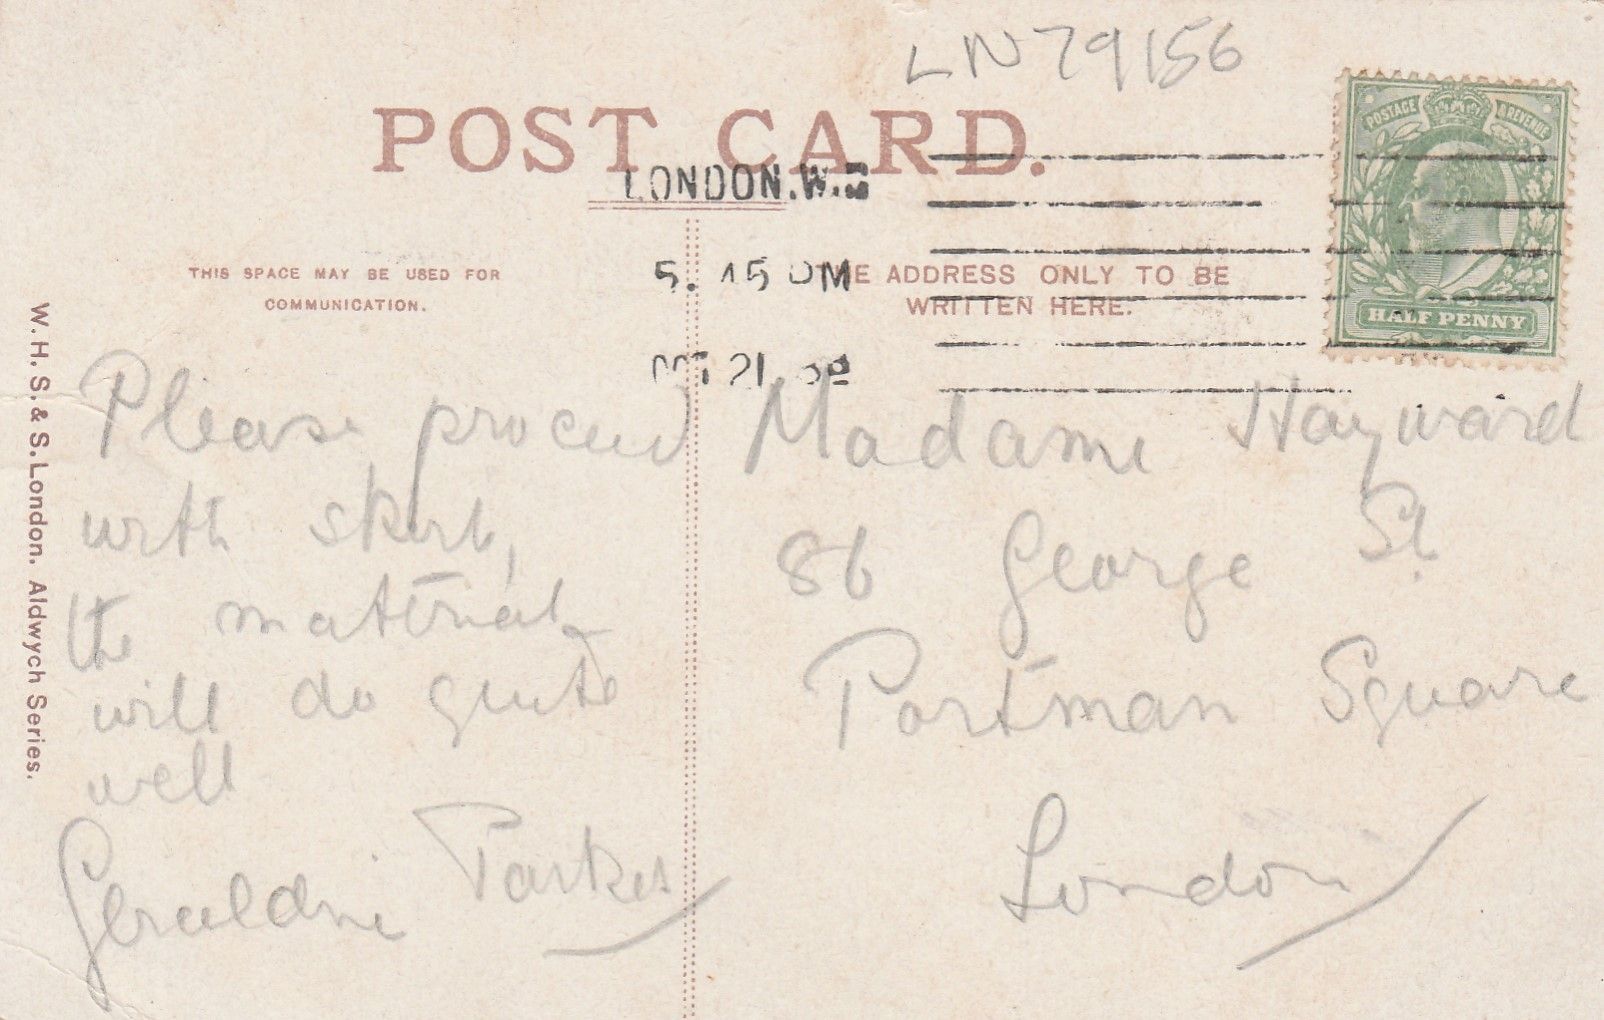 LN79156
POST CARD.
POSTAGE REVENUE
HALF PENNY
LONDON.W.
5. 15 PM
OCT 21
THIS SPACE MAY BE USED FOR
COMMUNICATION.
ADDRESS ONLY TO BE
WRITTEN HERE.
W. H. S. & S. London. Aldwych Series.
Please proceed
with skirt,
the material
will do quite
well
Geraldine Parkes
Madame Hayward
86 George St
Portman Square
London